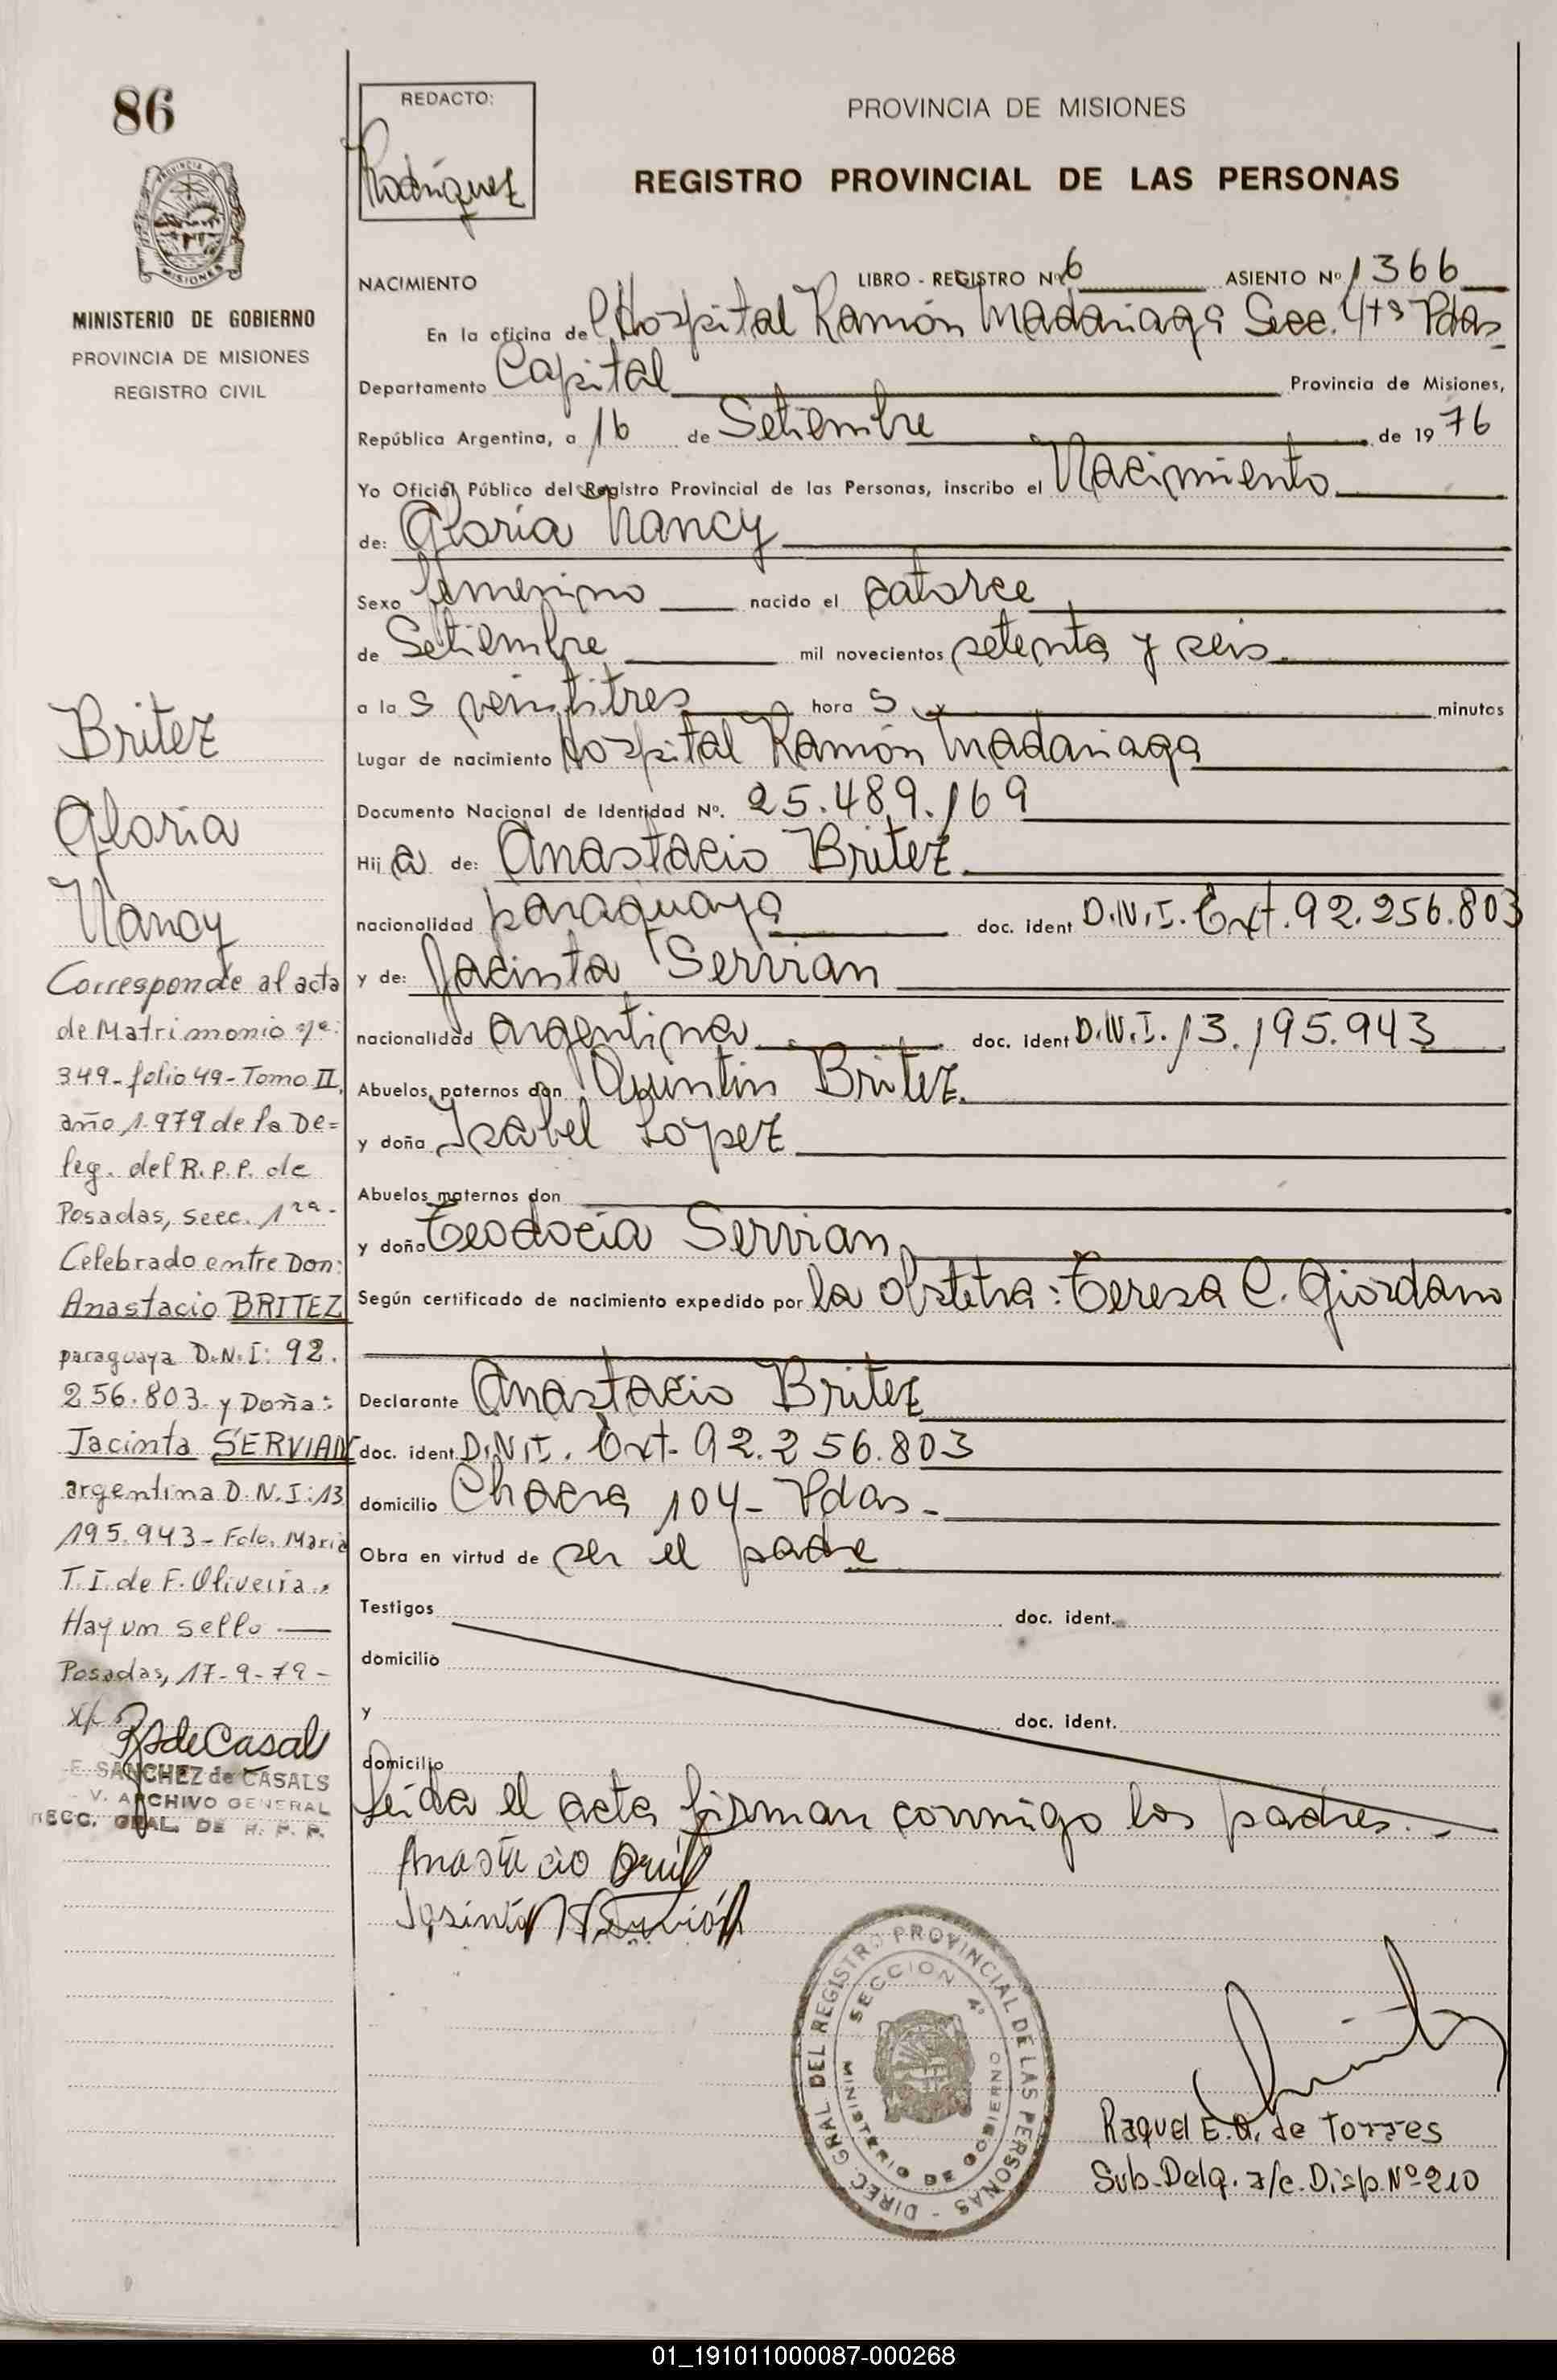 86
PROVINCIA DE MISIONES
MINISTERIO DE GOBIERNO
PROVINCIA DE MISIONES
REGISTRO CIVIL
Britez
Gloria
Nancy
Corresponde al acta
de Matrimonio nº:
349-folio 49-Tomo II,
año 1.979 de la De=
leg. del R.P.P. de
Posadas, secc. 1ra-
Celebrado entre Don:
Anastacio BRITEZ
paraguaya D.N.I: 92.
256.803 y Doña:
Jacinta SERVIAN
argentina D.N.I: 13
195.943- Fdo. Maria
T.I. de F. Oliveira.
Hay un sello —
Posadas, 17-9-79-
RSdeCasal
E. SANCHEZ de CASALS
V. ARCHIVO GENERAL
RECC. GRAL. DE R. P. P.
REDACTO:
Rodriguez
PROVINCIA DE MISIONES
REGISTRO PROVINCIAL DE LAS PERSONAS
NACIMIENTO LIBRO - REGISTRO Nº 6 ASIENTO Nº 1366
En la oficina del Hospital Ramón Madariaga Secc. 4ta Pdas
Departamento Capital Provincia de Misiones,
República Argentina, a 16 de Setiembre de 1976
Yo Oficial Público del Registro Provincial de las Personas, inscribo el Nacimiento
de: Gloria Nancy
Sexo femenino nacido el catorce
de Setiembre mil novecientos setenta y seis.
a la s veintitres hora s minutos
Lugar de nacimiento Hospital Ramón Madariaga
Documento Nacional de Identidad Nº. 25.489.169
Hij a de: Anastacio Britez
nacionalidad paraguaya doc. ident D.N.I. Ext. 92.256.803
y de: Jacinta Servian
nacionalidad argentina doc. ident D.N.I. 13.195.943
Abuelos paternos don Quintin Britez.
y doña Isabel Lopez
Abuelos maternos don
y doña Teodocia Servian
Según certificado de nacimiento expedido por la obstetra: Teresa C. Giordano
Declarante Anastacio Britez
doc. ident. D.N.I. Ext- 92.256.803
domicilio Chacra 104- Pdas-
Obra en virtud de ser el padre
Testigos doc. ident.
domicilio
y doc. ident.
domicilio
Leida el acta firman conmigo los padres.-
Anastacio
Jasinta Servión
DIREC. GRAL DEL REGISTRO PROVINCIAL DE LAS PERSONAS -
SECCION 4ª
MINISTERIO DE GOBIERNO
Raquel E. A. de Torres
Sub-Delg. a/c. Disp. Nº 210
01_191011000087-000268